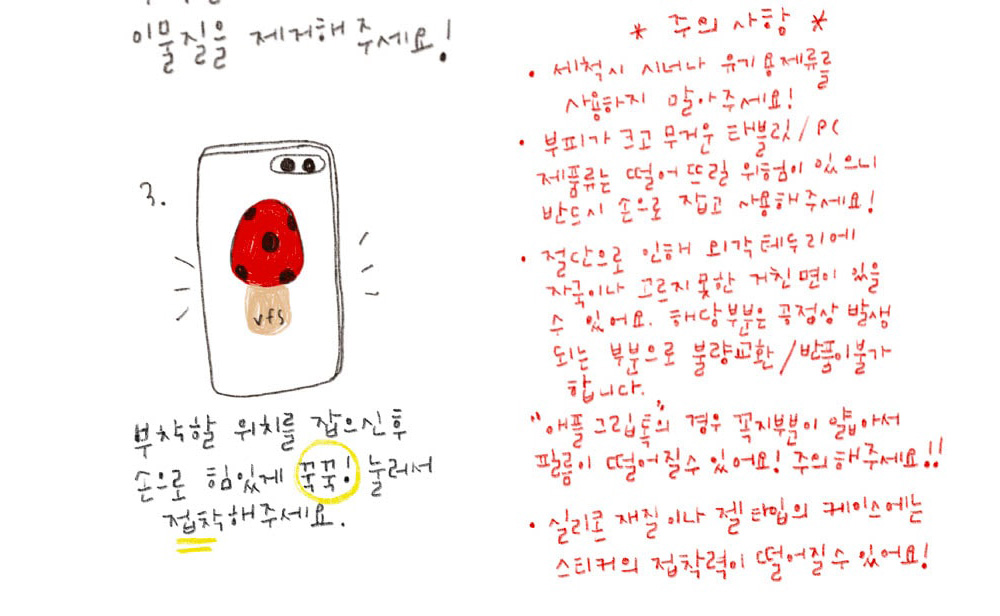 이물질을 제거해 주세요!
3.
vfs
부착할 위치를 잡으신후
손으로 힘있게 꾹꾹! 눌러서
접착해주세요.
* 주의 사항 *
• 세척시 시너나 유기용제류를
사용하지 말아주세요!
• 부피가 크고 무거운 태블릿/PC
제품류는 떨어 뜨릴 위험이 있으니
반드시 손으로 잡고 사용해주세요!
• 절단으로 인해 외각 테두리에
자국이나 고르지 못한 거친 면이 있을
수 있어요. 해당부분은 공정상 발생
되는 부분으로 불량교환/반품이불가
합니다.
"애플 그립톡"의 경우 꼭지부분이 얇아서
필름이 떨어질수 있어요! 주의해주세요!!
• 실리콘 재질이나 젤타입의 케이스에는
스티커의 접착력이 떨어질수 있어요!